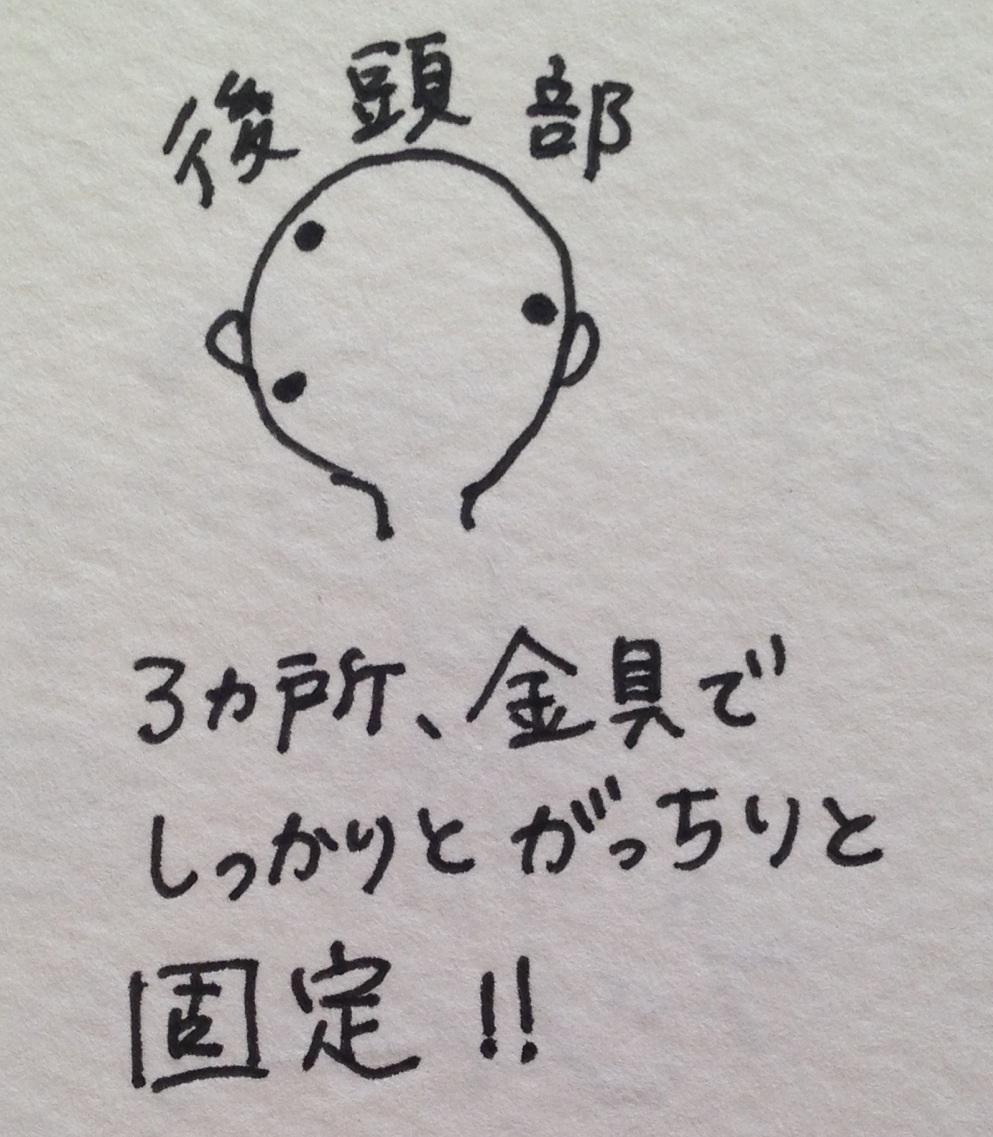 後頭部
3ヵ所、金具で
しっかりとがっちりと
固定!!